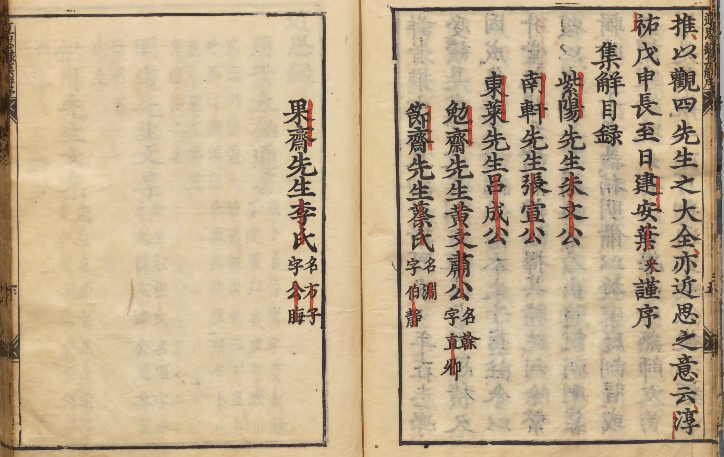 推以觀四先生之大全亦近思之意云淳
祐戊申長至日建安葉采謹序
集解目録
紫陽先生朱文公
南軒先生張宣公
東萊先生呂成公
勉齋先生黄文肅公名榦字直卿
節齋先生蔡氏名淵字伯靜
果齋先生李氏名方子字公晦